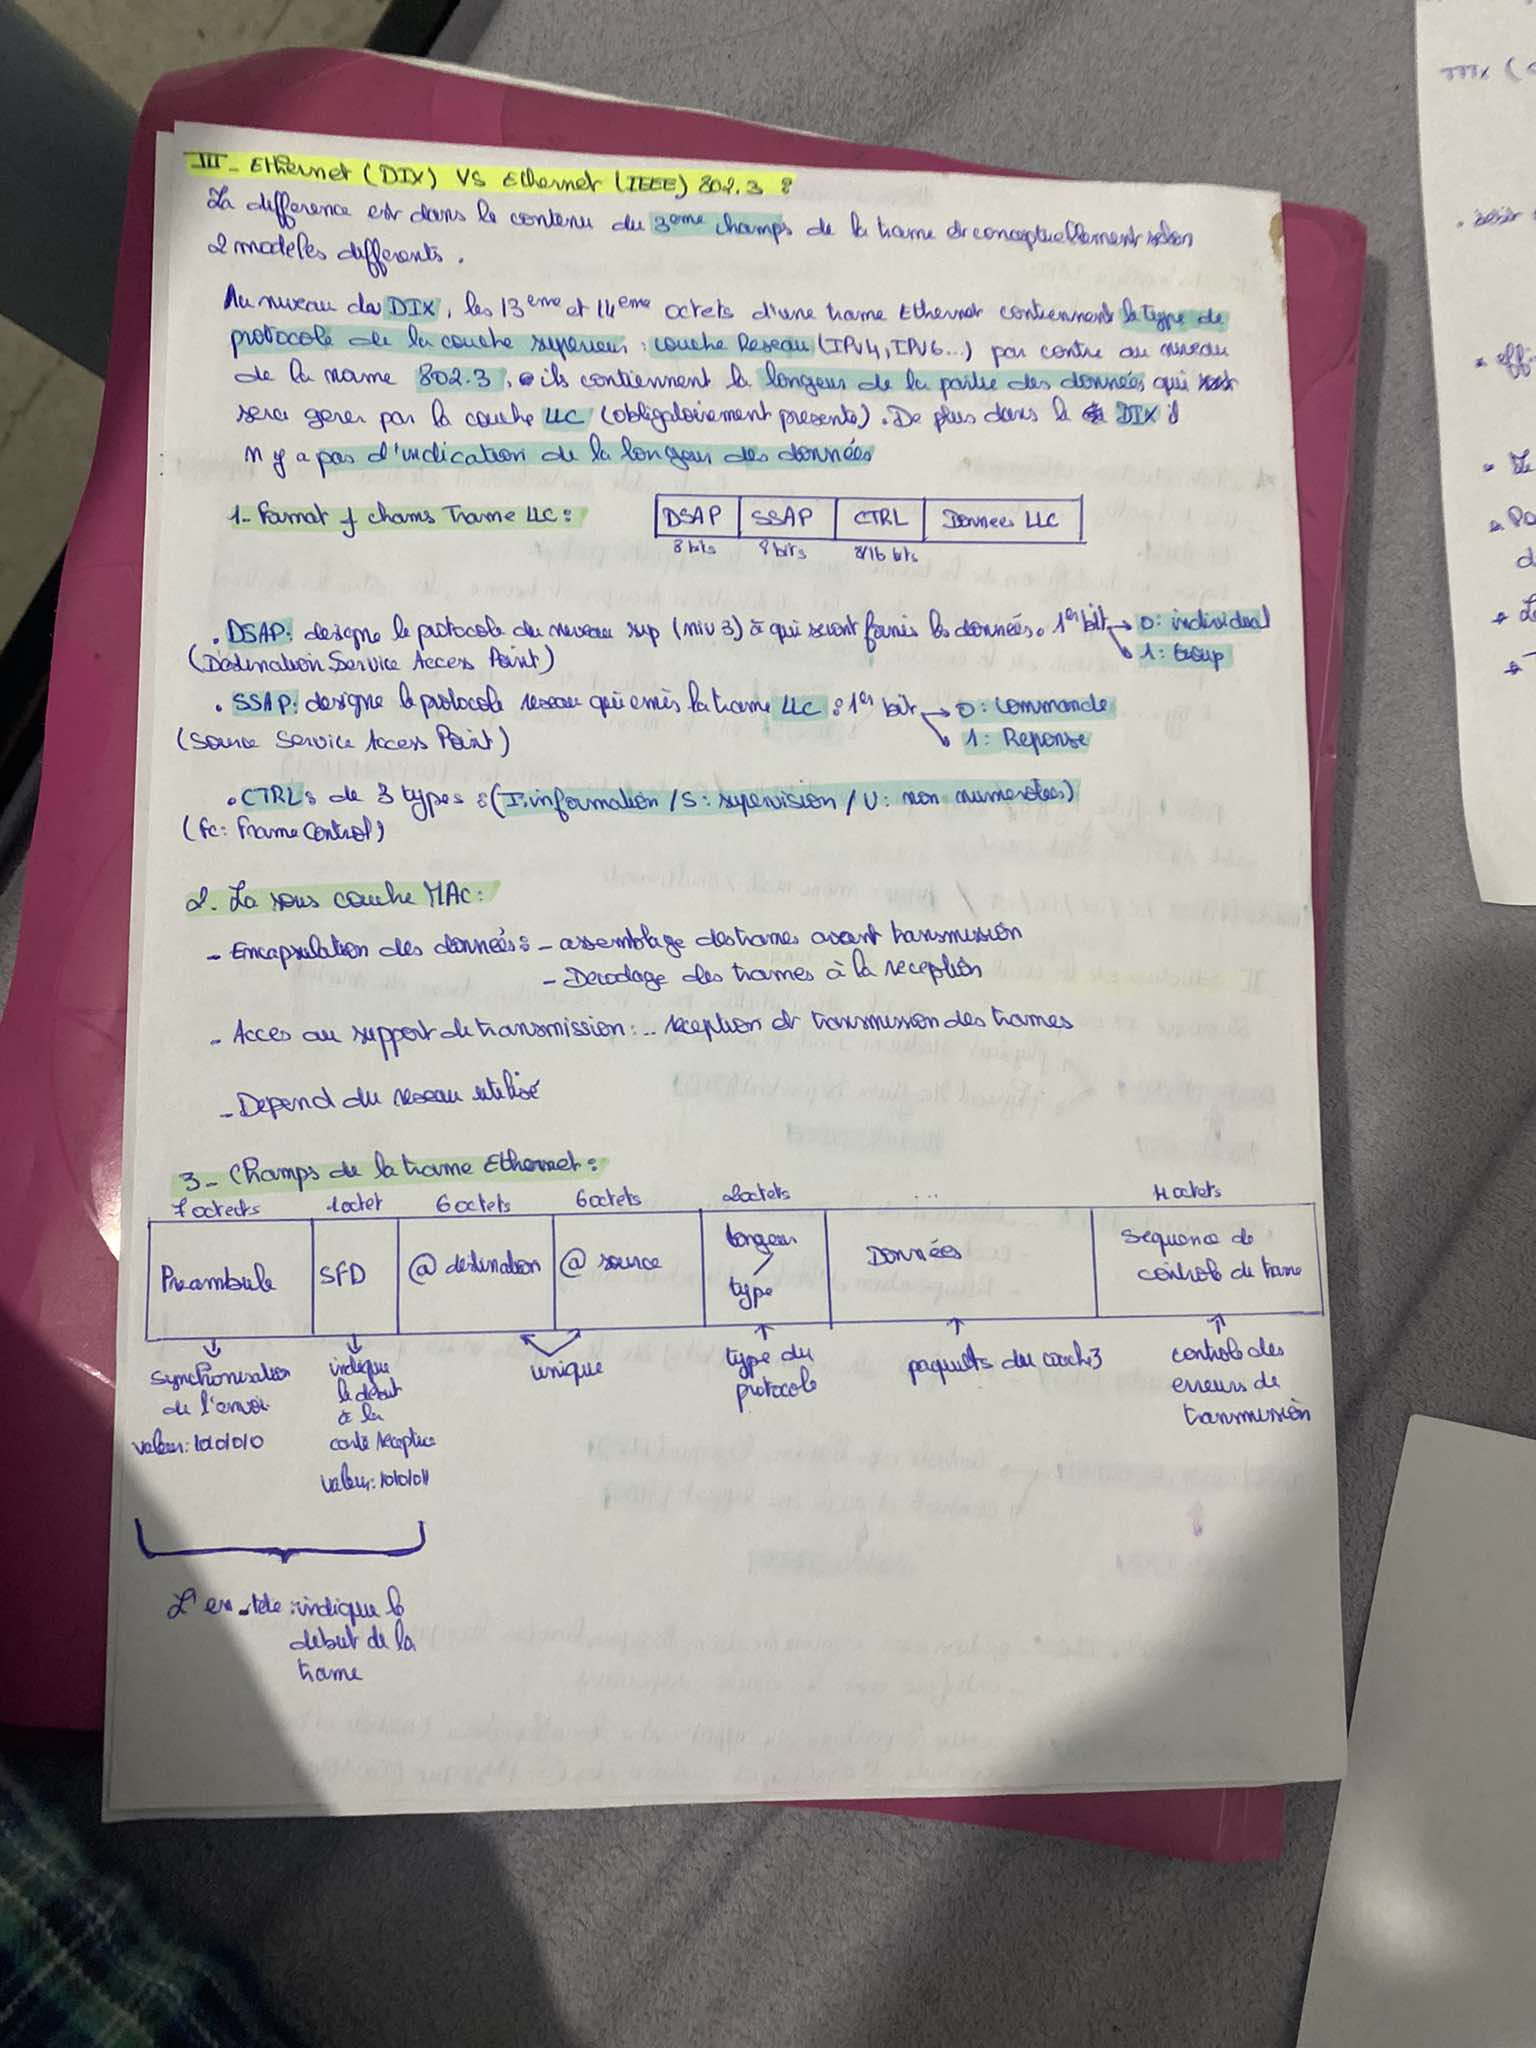 III - Ethernet (DIX) VS Ethernet (IEEE) 802.3 :
La difference est dans le contenu du 3eme champs de la trame et conceptuellement selon
2 modeles differents.
Au niveau du DIX, les 13eme et 14eme octets d'une trame Ethernet contiennent le type de
protocole de la couche superieur : couche Reseau (IPV4, IPV6...) par contre au niveau
de la norme 802.3, ils contiennent la longeur de la partie des données qui
sera gerer par la couche LLC (obligatoirement presente). De plus dans le DIX il
n y a pas d'indication de la longeur des données
1- Format f chams Trame LLC :
DSAP SSAP CTRL Donnees LLC
8 bits 8 bits 8/16 bits
. DSAP: designe le protocole du niveau sup (niv 3) à qui seront fornis les données. 1er bit → 0: individual
(Destination Service Access Point) 1: Group
. SSAP: designe le protocole reseau qui emis la trame LLC : 1er bit → 0: Commande
(Source Service Access Point) 1: Reponse
. CTRL: de 3 types : (I: information / S: supervision / U: non numerotées)
(fc: Frame Control)
2. La sous couche MAC:
- Encapsulation des données: - assemblage des trames avant transmission
- Decodage des trames à la reception
- Acces au support de transmission: .. reception et transmission des trames
- Depend du reseau utilisé
3- Champs de la trame Ethernet :
7 octects 1octet 6 octets 6octets 2octets ... 4 octets
Preambule SFD @ destination @ source longeur / type Données Sequence de controle de trame
synchronisation
de l'envoi
valeur: 101010
indique
le debut
à la
carte receptrice
valeur: 101011
unique
type du
protocole
paquets du couche 3
controle des
erreurs de
transmission
L'en-tete : indique le
debut de la
trame